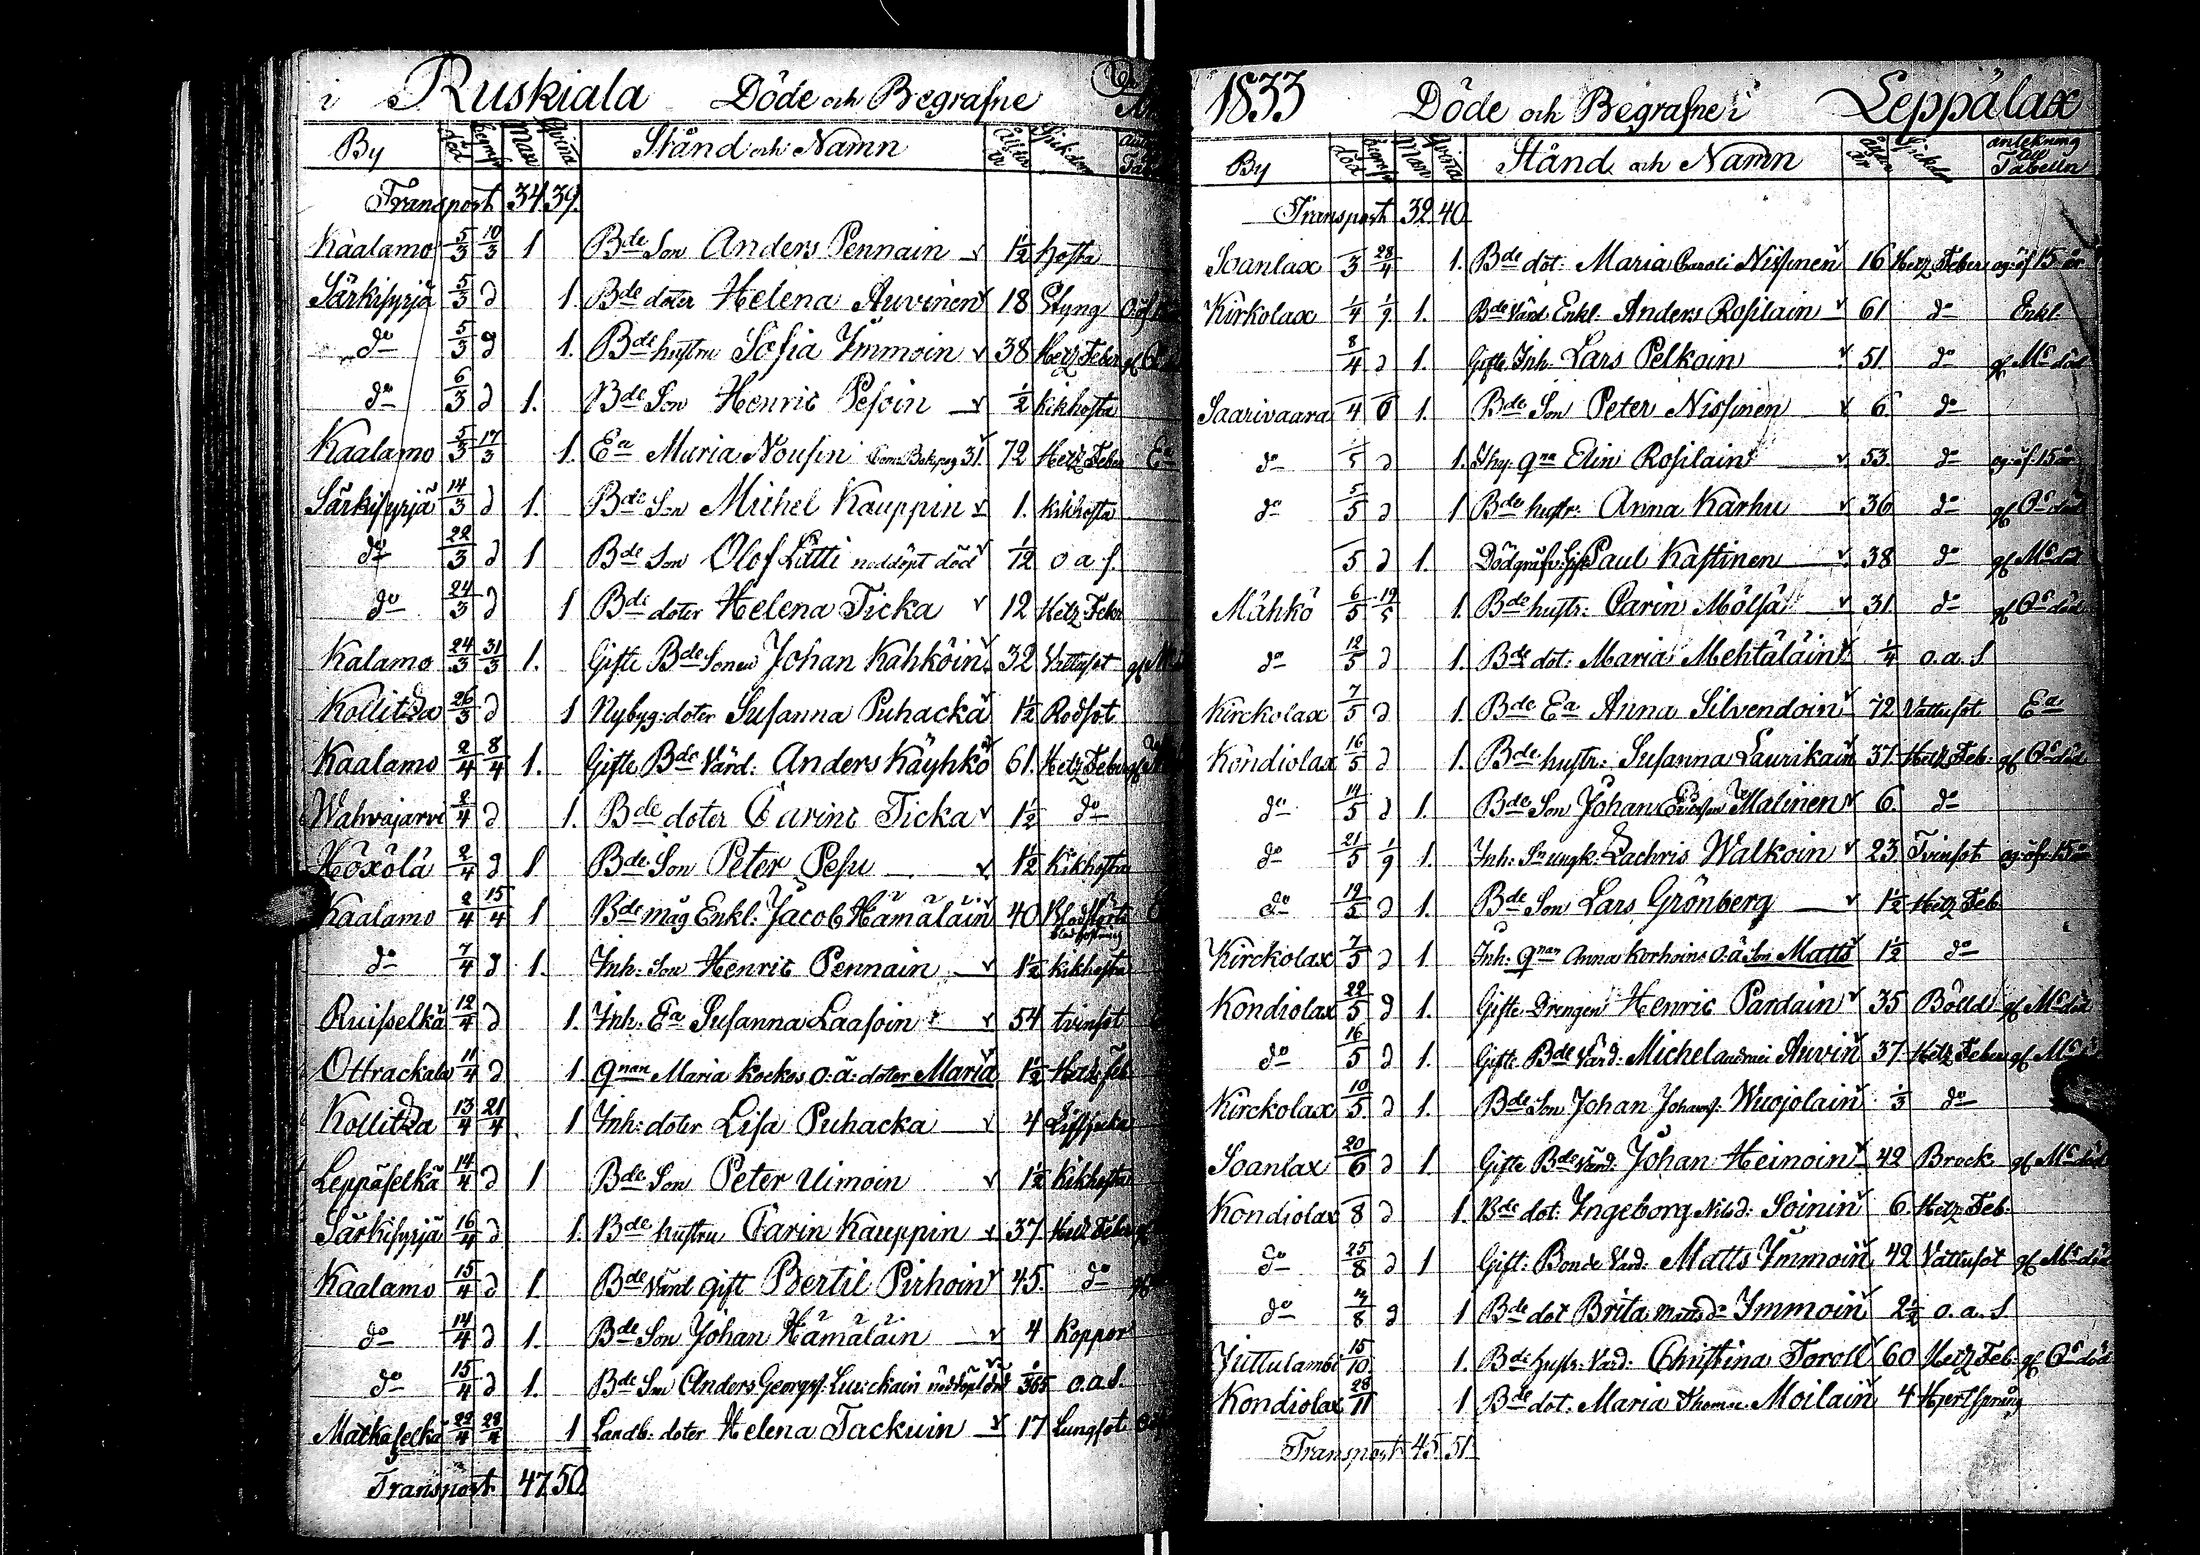 i Ruskiala Döde och Begrafne
By död begrafn Man Qvina Stånd och Namn Ålder år Sjukdom
Transport 34 39.
Kaalamo 5/3 10/3 1 Bde Son Anders Pennain 1½ hosta
Särkisyrjä 5/3 d 1. Bde doter Helena Auvinen 18 Styng
do 5/3 d 1. Bde hustru Sofia Immoin 38 Hetz Feber
do 6/3 d 1. Bde Son Henric Pesoin ½ kikhosta
Kaalamo 5/3 17/3 1. Ea Maria Nousin 31 72 Hetz Feber Ea
Särkisyrjä 14/3 d 1. Bde Son Michel Kauppin 1. kikhosta
do 22/3 d 1 Bde Son Olof Litti nöddöpt död 1/12 o a s.
do 24/3 d 1 Bde doter Helena Ticka 12 Hetz Feber
Kalamo 24/3 31/3 1. Gifte Bde Sonen Johan Kähköin 32 Vattusot
Kollitza 26/3 d 1 Nybyg: doter Susanna Puhacka 1½ Rödsot
Kaalamo 2/4 8/4 1. Gifte Bde Värd: Anders Käyhkö 61. Hetz Feber
Wahvajarvi 2/4 d 1. Bde doter Carine Ticka 1½ do
Höxölä 2/4 d 1 Bde Son Peter Pesu 1½ Kikhosta
Kaalamo 2/4 15/4 1 Bde måg Enkl: Jacob Hämäläin 40
do 7/4 d 1. Inh: Son Henric Pennain 1½ kikhosta
Ruisselkä 12/4 d 1. Inh: Ea Susanna Laasoin 54 tvinsot
Ottrackala 11/4 d 1 qnan Maria Kockos o: ä: doter Maria 1½ Hetz feb
Kollitza 13/4 21/4 1 Inh: doter Lisa Puhacka 4
Leppäselkä 14/4 d 1 Bde Son Peter Uimoin 1½ Kikhosta
Särkisyrjä 16/4 d 1. Bde hustru Carin Kauppin 37. Hetz Feber
Kaalamo 15/4 d 1. Bde Värd gift Bertil Pirhoin 45. do
do 14/4 d 1. Bde Son Johan Hämäläin 4 Koppor
do 15/4 d 1. Bde Son Anders Georgss: nöddöpt död 1/365 o.a.s.
Matkaselkä 22/4 28/4 1 Landb: doter Helena Tackuin 17 Lungsot
Transport 47 50.
1833 Döde och Begrafne i Leppälax
By död begrafn Man Qvina Stånd och Namn Ålder år Sjukd anteknung till Tabelln
Transport 32 40
Soanlax /3 28/4 1. Bde dot: Maria Caroli Nissinen 16 Hetz Feber og: öf 15 år
Kirkolax 1/4 1/9 1. Bde Värd Enkl: Anders Rosilain 61 do Enkl.
8/4 d 1. Gifte Inh: Lars Pelkoin 51. do gf Ms död
Saarivaara /4 1. Bde Son Peter Nissinen 6 do
do /5 d 1. qna Elin Rosilain 53. do og: öf: 15 år
do 5/5 d 1 Bde hustr: Anna Karhu 36 do gf Qs död
/5 d 1. Dödgräfv: Gift Paul Kastinen 38 do gf Ms död
Mähkö 6/5 19/5 1. Bde hustr: Carin Mölsä 31 do gf Qs död
do 12/5 d 1. Bde dot: Maria Mehtäläin ¼ o. a. s
Kirckolax 7/5 d 1. Bde Ea Anna Silvendoin 72 Vattusot Ea
Kondiolax 16/5 d 1. Bde hustr: Susanna Laurikain 37 Hetz Feb: gf Qs död
do 14/5 d 1. Bde Son Johan Ericsson Malinen 6. do
do 21/5 1/9 1. Inh: Sn ungk: Zachris Walkoin 23 Tvinsot og: öfr 15 år
do 19/5 d 1. Bde Son Lars Grönberg 1½ Hetz Feb
Kirckolax 7/5 d 1. Inh: qnan Anna Korhoins o: ä Son Matts 1½ do
Kondiolax 22/5 d 1. Gifte Drengen Henric Pardain 35 Böld gf Ms död
do 16/5 d 1. Gifte Bde Värd: Michel Auvin 37 Hetz Feber gf Ms
Kirckolax 10/5 d 1. Bde Son Johan Johanss: Wuojolain ⅓ do
Soanlax 20/6 d 1. Gifte Bde Värd: Johan Heinoin 42 Brock gf Ms död
Kondiolax /8 d 1. Bde dot: Ingeborg Nilsd: Soinin 6. Hetz Feb.
do 25/8 d 1 Gift: Bonde Värd: Matts Immoin 42 Vattusot gf Ms död
do 3/8 d 1 Bde dot Brita Mattsdr Immoin 2½ o. a. s.
Juttulambi 15/10 1. Bde hustr: Värd: Christina Toroll 60 Hetz Feb: gf Qs död
Kondiolax 28/11 1 Bde dot: Maria Thomae Moilain 4 Hjertsprång
Transport 45 51